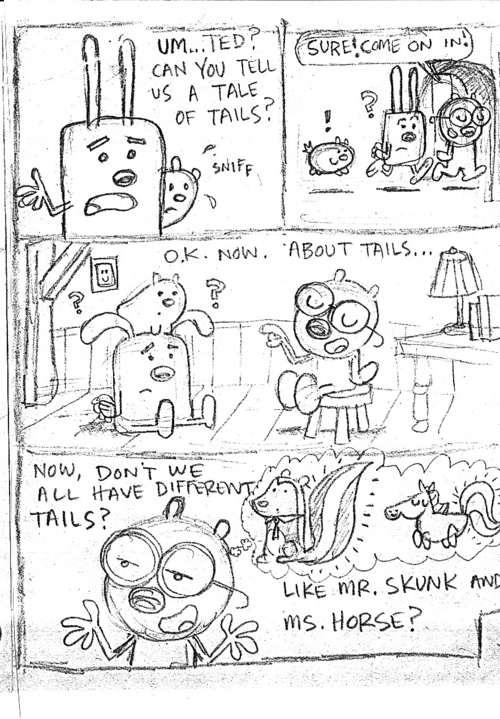 UM...TED?
CAN YOU TELL
US A TALE
OF TAILS?
SNIFF
SURE! COME ON IN!
!
?
O.K. NOW. ABOUT TAILS...
?
?
NOW, DON'T WE
ALL HAVE DIFFERENT
TAILS?
LIKE MR. SKUNK AND
MS. HORSE?